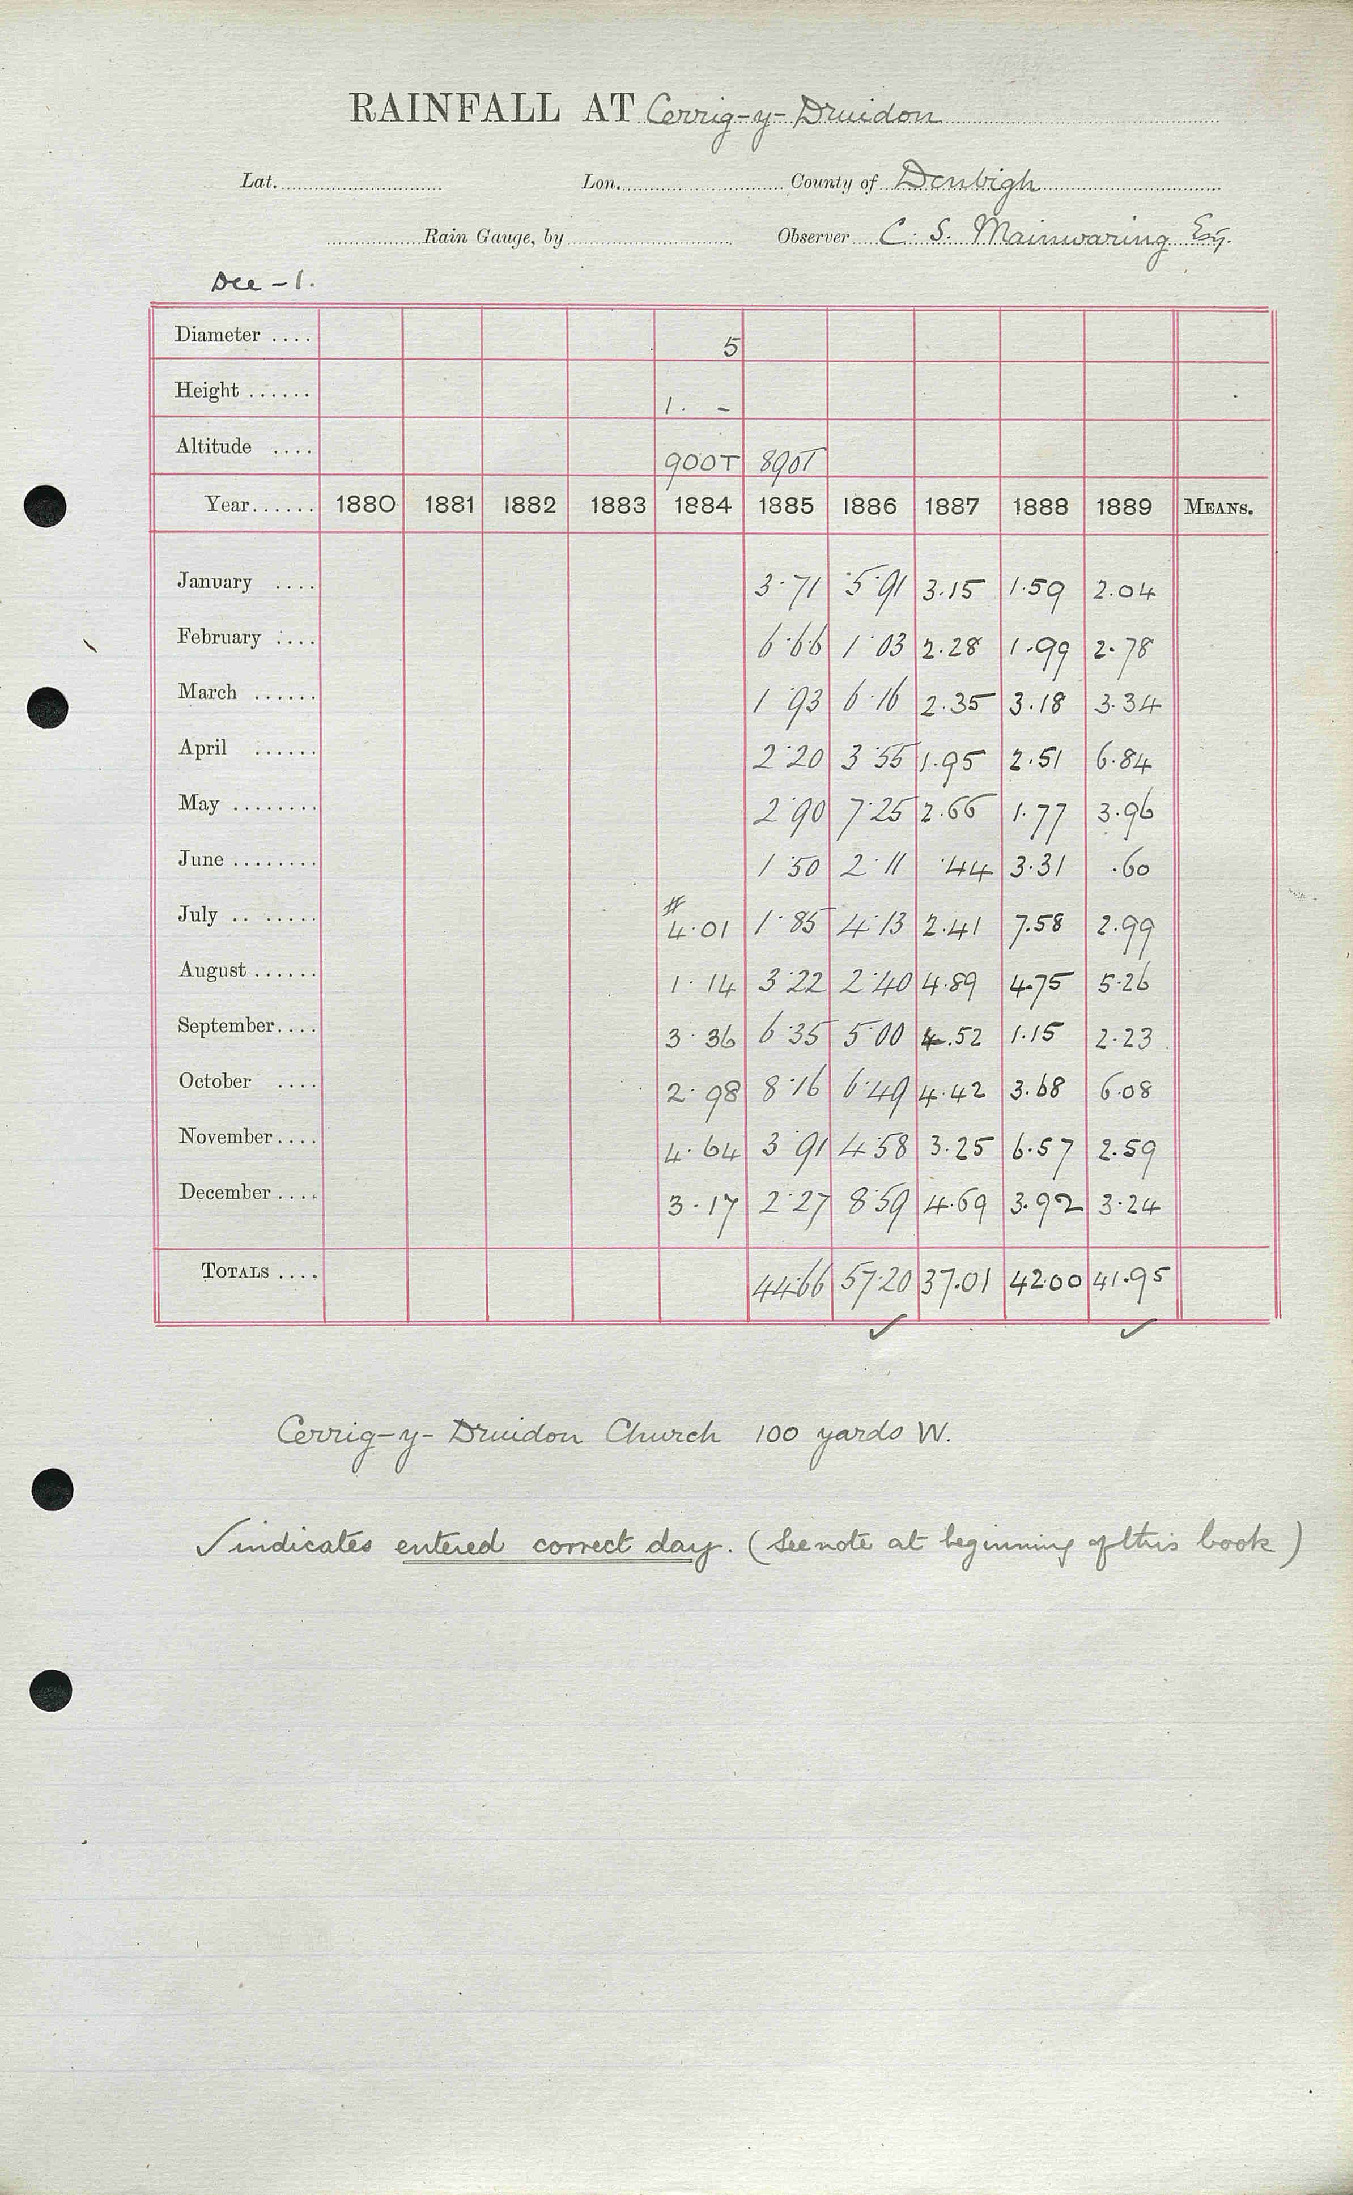 RAINFALL AT Cerrig-y-Druidon
Lat. Lon. County of Denbigh
Rain Gauge, by Observer C. S. Mainwaring Esq.
Dee - 1.
Diameter .... 5
Height ...... 1. -
Altitude .... 900T 890T
Year...... 1880 1881 1882 1883 1884 1885 1886 1887 1888 1889 MEANS.
January .... 3.71 5.91 3.15 1.59 2.04
February .... 6.66 1.03 2.28 1.99 2.78
March ...... 1.93 6.16 2.35 3.18 3.34
April ...... 2.20 3.55 1.95 2.51 6.84
May ........ 2.90 7.25 2.66 1.77 3.96
June ........ 1.50 2.11 .44 3.31 .60
July .. ..... # 4.01 1.85 4.13 2.41 7.58 2.99
August ...... 1.14 3.22 2.40 4.89 4.75 5.26
September.... 3.36 6.35 5.00 4.52 1.15 2.23
October .... 2.98 8.16 6.49 4.42 3.68 6.08
November.... 4.64 3.91 4.58 3.25 6.57 2.59
December .... 3.17 2.27 8.59 4.69 3.92 3.24
TOTALS .... 44.66 57.20 37.01 42.00 41.95
✓ ✓
Cerrig-y-Druidon Church 100 yards W.
✓ indicates entered correct day. (See note at beginning of this book)